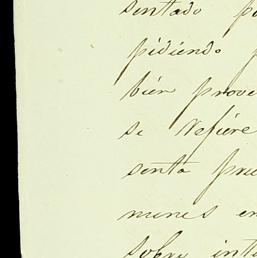 sentado
pidiendo
bién prove
se Refiere
senta pre
munes en
sobre inte